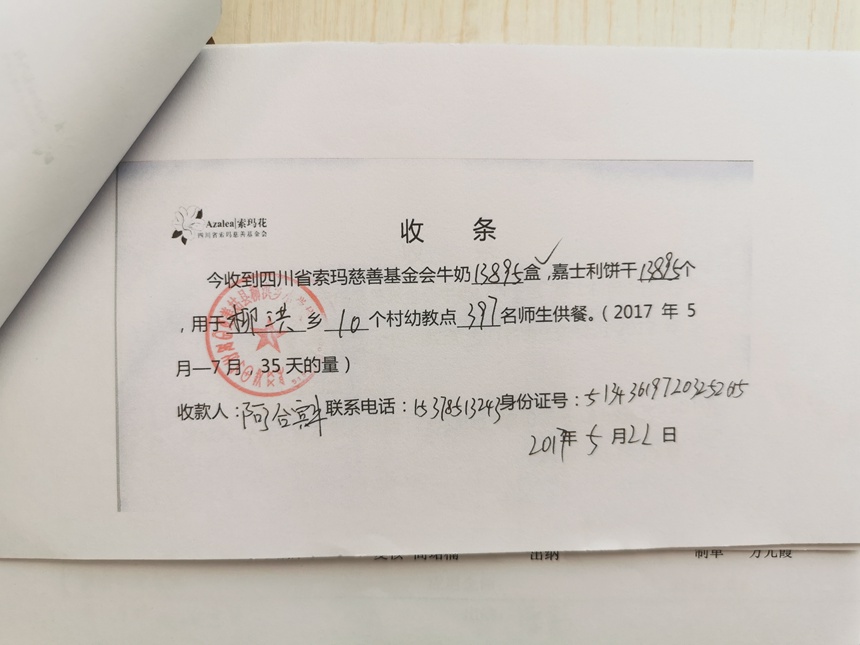 Azalea|索玛花
四川省索玛慈善基金会
收 条
今收到四川省索玛慈善基金会牛奶13895盒,嘉士利饼干13895个
,用于柳洪乡10个村幼教点397名师生供餐。(2017 年 5
月—7月 35天的量)
收款人:阿合 联系电话:15378513243身份证号:51343619720325265
2017年5月22日
出纳
制单